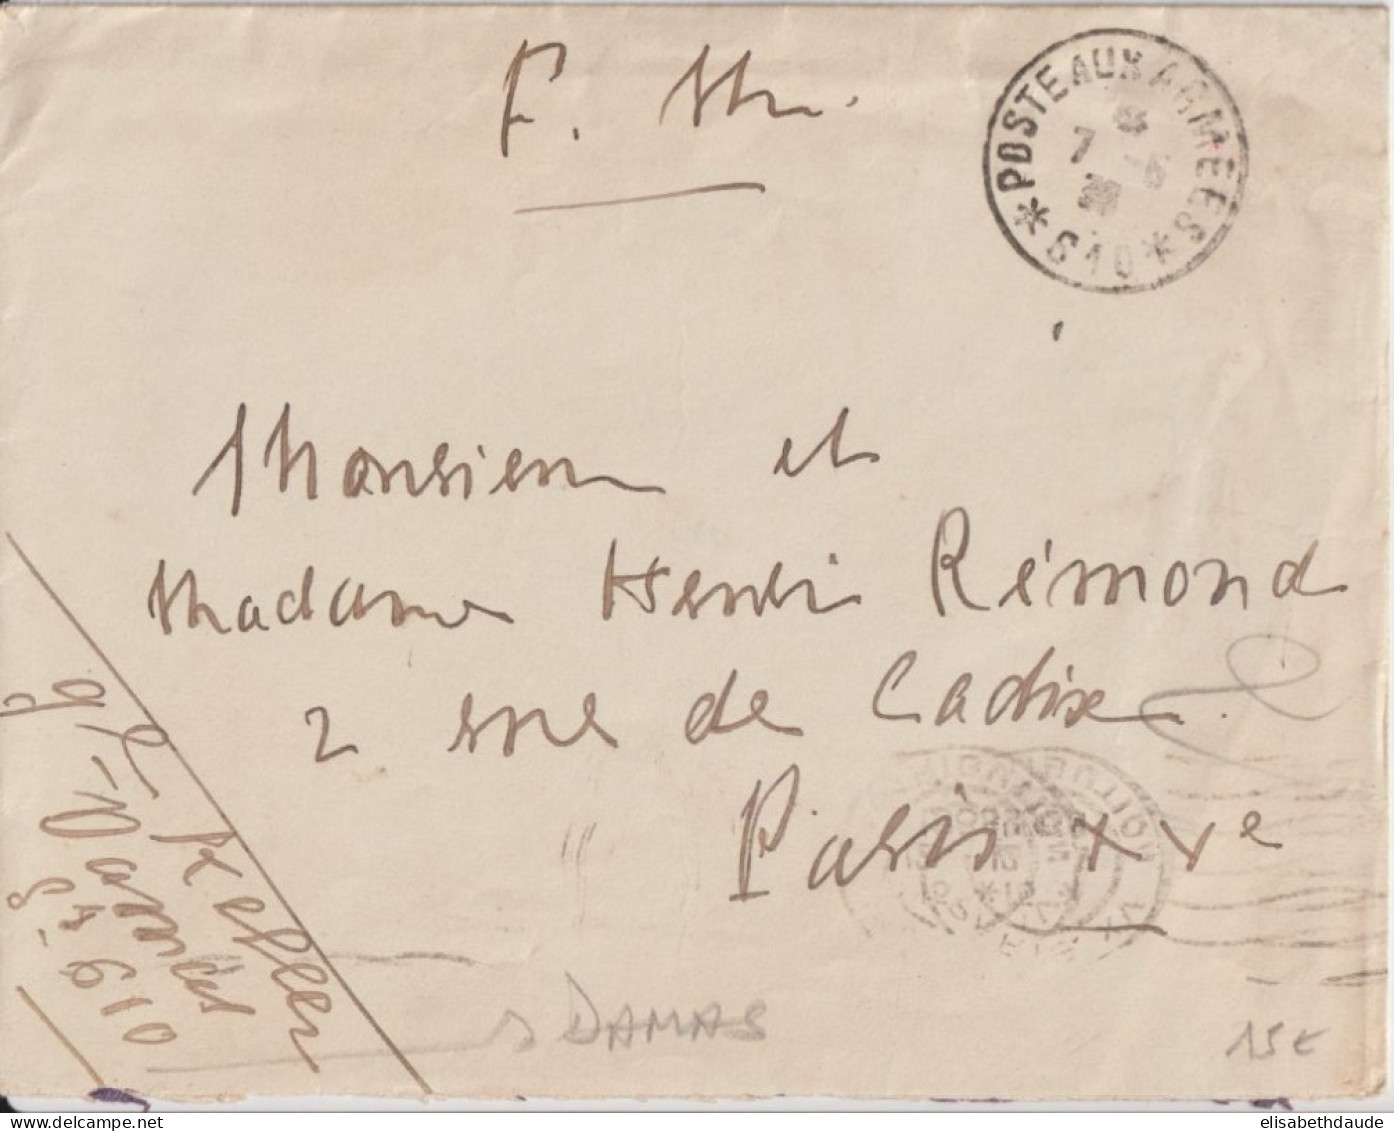 F. M.
* POSTE AUX ARMÉES *
7 -5
610
Monsieur et
Madame Henri Rémond
2 rue de Cadix
Paris XVe
Keller
Damas
610
DAMAS
15€
www.delcampe.net
elisabethdaude